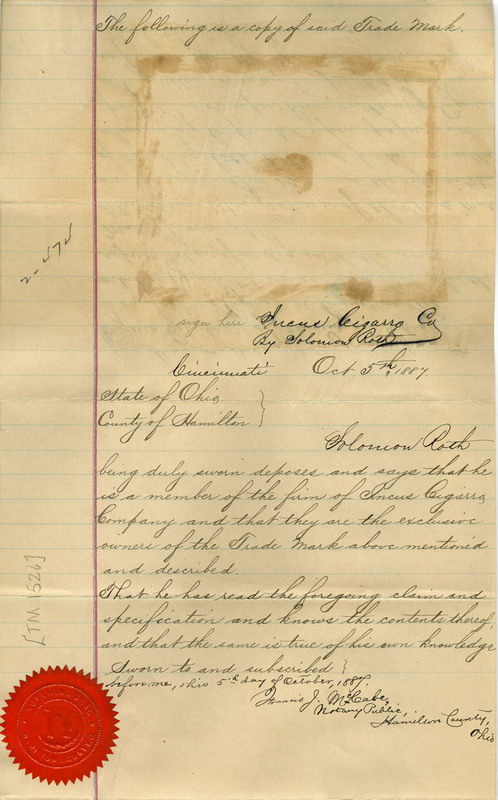 The following is a copy of said Trade Mark.
2-474
sign here Incus Cigarro Co
By Solomon Roth
Cincinnati Oct 5th, 1887.
State of Ohio
County of Hamilton }
Solomon Roth
being duly sworn deposes and says that he
is a member of the firm of Incus Cigarro
Company and that they are the exclusive
owners of the Trade Mark above mentioned
and described.
That he has read the foregoing claim and
specification and knows the contents thereof,
and that the same is true of his own knowledge
Sworn to and subscribed }
before me, this 5th day of October, 1887.
Francis J. McCabe,
Notary Public,
Hamilton County,
Ohio
[TM 1526]